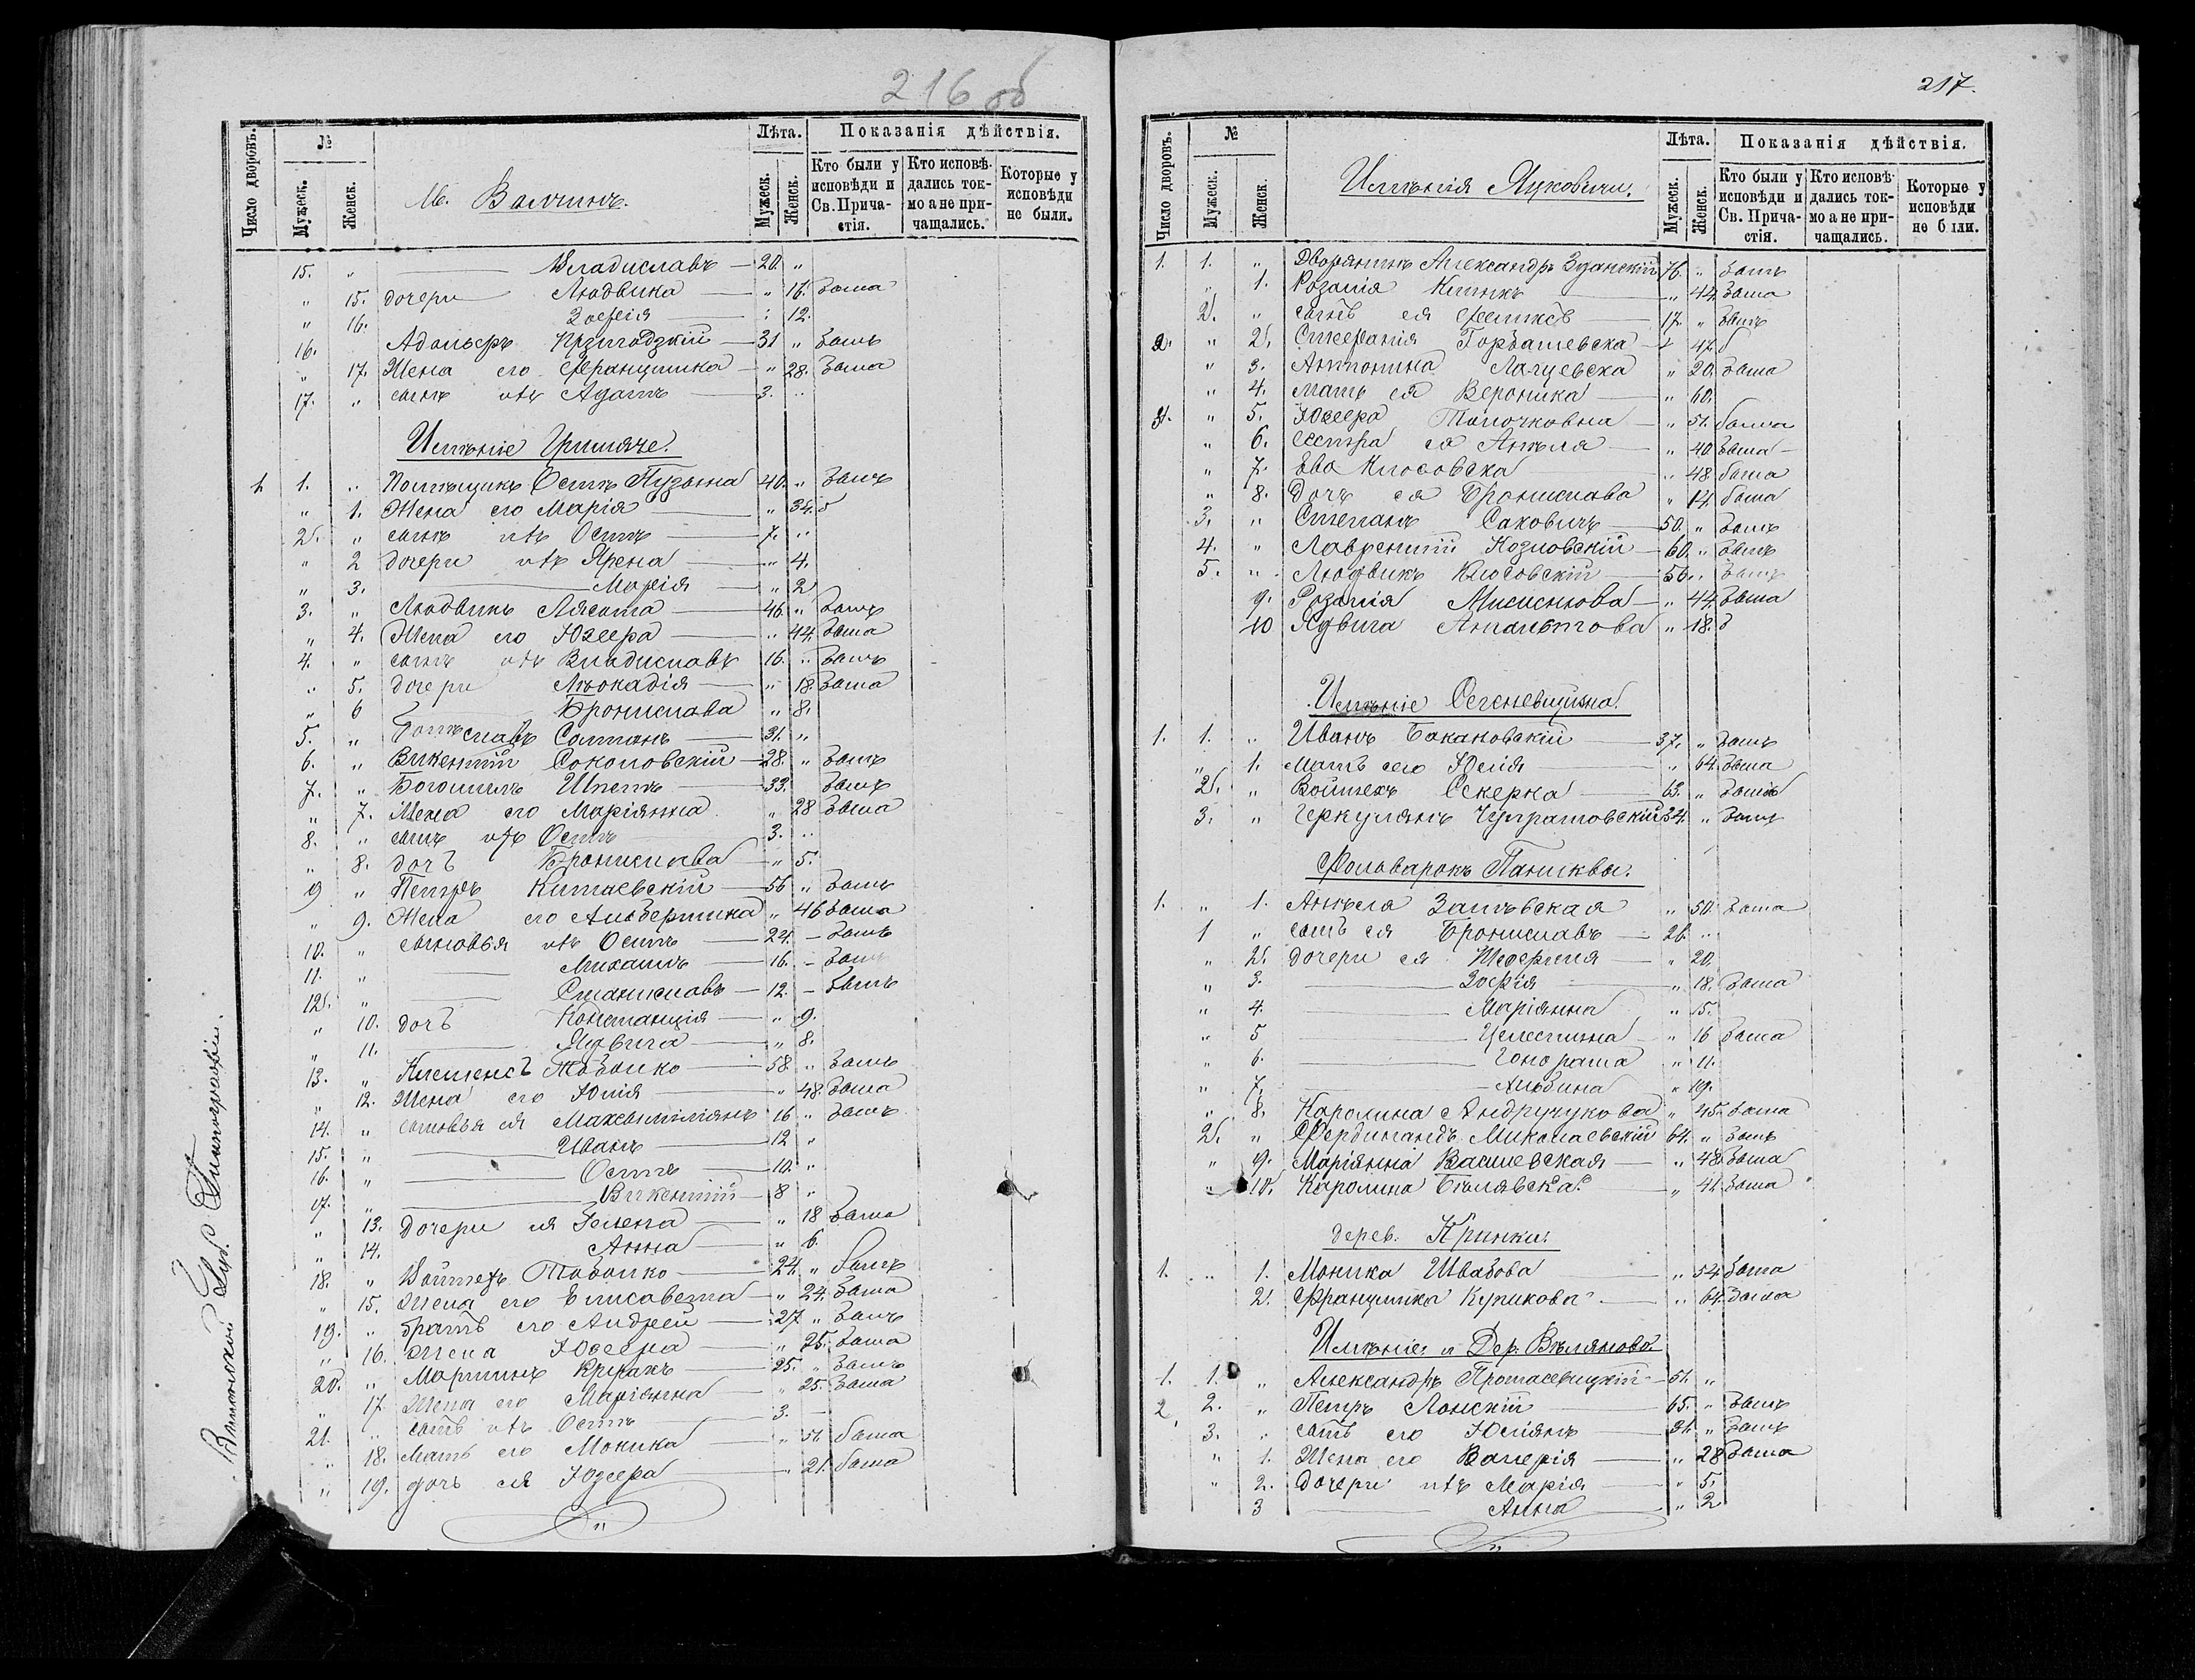 216 об
Число дворовъ.
№
Мужеск.
Женск.
М. Волчинъ.
Лѣта.
Мужеск.
Женск.
Показанія дѣйствія.
Кто были у исповѣди и Св. Причастія.
Кто исповѣдались токмо а не причащались.
Которые у исповѣди не были.
15. „ — Владиславъ — 20. „
„ 15. дочери Людвика — „ 16. была
„ 16. Зофія — 12.
16. Адольфъ — 31 „ былъ
„ 17. Жена его Францишка — „ 28. была
17. „ сынъ ихъ Адамъ — 3. „
Имѣніе Гримяче.
1 1. „ Помѣщикъ Осипъ Пузына 40. „ былъ
„ 1. Жена его Марія „ 34. б
2. „ сынъ ихъ Осипъ — 7. „
„ 2 дочери ихъ Ирена — „ 4.
„ 3. — Марія — „ 2
3. „ Людвикъ Лясота — 46 „ былъ
„ 4. Жена его Юзефа — „ 44. была
4. „ сынъ ихъ Владиславъ 16. „ былъ
„ 5. дочери Лѣокадія — „ 18. была
„ 6 Бронислава „ 8.
5. „ Солтанъ — 31. „
6. „ Викентій Соколовскій — 28. „ былъ
7. „ Богомилъ — 33. былъ
„ 7. Жена его Маріянна „ 28 была
8. „ сынъ ихъ Осипъ 3. „
„ 8. дочь Бронислава — „ 5.
9 „ Петръ Китаевскій — 56 „ былъ
„ 9. Жена его Альбертина „ 46 была
10. „ сыновья ихъ Осипъ — 24. – былъ
11. „ — Михаилъ — 16. – былъ
12. „ — Станиславъ — 12. – былъ
„ 10. дочь Констанція — „ 9.
„ 11. — Ядвига — „ 8.
13. „ Клеменсъ — 58 „ былъ
„ 12. Жена его Юлія — „ 48. была
14. „ сыновья ея Максымиліянъ 16 „ былъ
15. „ — Иванъ — 12 „
16. „ — Осипъ — 10. „
17. „ — Викентій — 8 „
„ 13. дочери ея Гелена — „ 18 была
„ 14. Анна — „ 6.
18. „ Войтехъ — 24. „ былъ
„ 15. Жена его Елисавета — „ 24. была
19. „ братъ его Андрей — 27 „ былъ
„ 16. Жена Юзефа — „ 25. была
20. „ Мартинъ — 25. „ былъ
„ 17 Жена его Маріянна „ 25. была
21. „ сынъ ихъ Осипъ — 3. —
„ 18. Мать его Моника „ 51. была
„ 19. дочь ея Юзефа — „ 21. была
Виленской Губ. Типографіи.
217.
Число дворовъ.
№
Мужеск.
Женск.
Имѣнія Яцковичи.
Лѣта.
Мужеск.
Женск.
Показанія дѣйствія.
Кто были у исповѣди и Св. Причастія.
Кто исповѣдались токмо а не причащались.
Которые у исповѣди не были.
1. 1. „ Дворянинъ Александръ Зданскій 76. „ былъ
„ 1. Розалія — „ 44. была
2. „ сынъ ея Феликсъ — 17. „ былъ
2. „ 2. Стефанія Горбачевска „ 47. б
„ 3. Антонина „ 20. была
„ 4. мать ея Вероника — „ 60.
3. „ 5. Юзефа — „ 51. была
„ 6. сестра ея Анѣля — „ 40 была
„ 7. Ева Клосовска — „ 48. была
„ 8. дочь ея Бронислава „ 14. была
3. „ Степанъ Саковичъ — 50. „ былъ
4. „ Лаврентій Козловскій — 60. „ былъ
5. „ Людвикъ Клосовскій — 56. „ былъ
9. Розалія — „ 44. была
10 Ядвига „ 18. б
Имѣніе
1. 1. „ Иванъ Бокановскій — 37. „ былъ
„ 1. Мать его Юлія — „ 64. была
2. „ Войтехъ Скерка — 63. „ былъ
3. „ Геркулянъ 34. „ былъ
Фольварокъ Паниквы.
1. „ 1. Анѣля Залѣвская „ 50. была
1 „ сынъ ея Брониславъ — 26. „
„ 2. дочери ея „ 20.
„ 3. — Зофія — „ 18. была
„ 4. — Маріянна „ 15.
„ 5 — Целестина „ 16 была
„ 6. — Гонората „ 11.
„ 7. — Альбина „ 19.
„ 8. Каролина Андручукова „ 45. была
2. „ Фердинандъ Миколаевскій 64. „ былъ
„ 9. Маріянна Василевская — „ 48. была
„ 10. Каролина Бѣлявска. — „ 41 была
дерев. Кринки.
1. „ 1. Моника Швабова „ 54. была
2. Францишка Куликова — „ 64. была
Имѣніе и Дер. Вѣляново.
1. 1. „ Александръ Протасевицкій — 51. „
2 2. „ Петръ Лонскій — 65. „ былъ
3. „ сынъ его Юліянъ — 31. „ былъ
„ 1. Жена его Валерія — „ 28 была
„ 2. дочери ихъ Марія — „ 5.
3 — Анна — „ 2